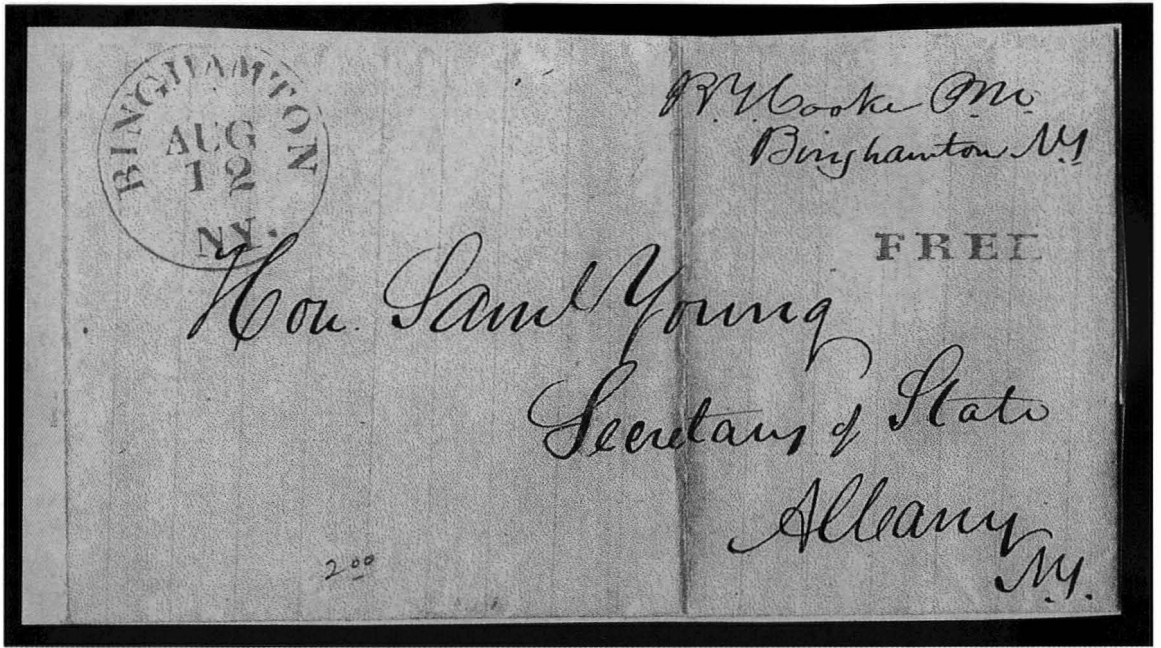 BINGHAMTON
AUG
12
NY.
R. Y. Cooke P.M.
Binghamton N.Y.
FREE
Hon. Saml Young
Secretary of State
Albany
N.Y.
2.00